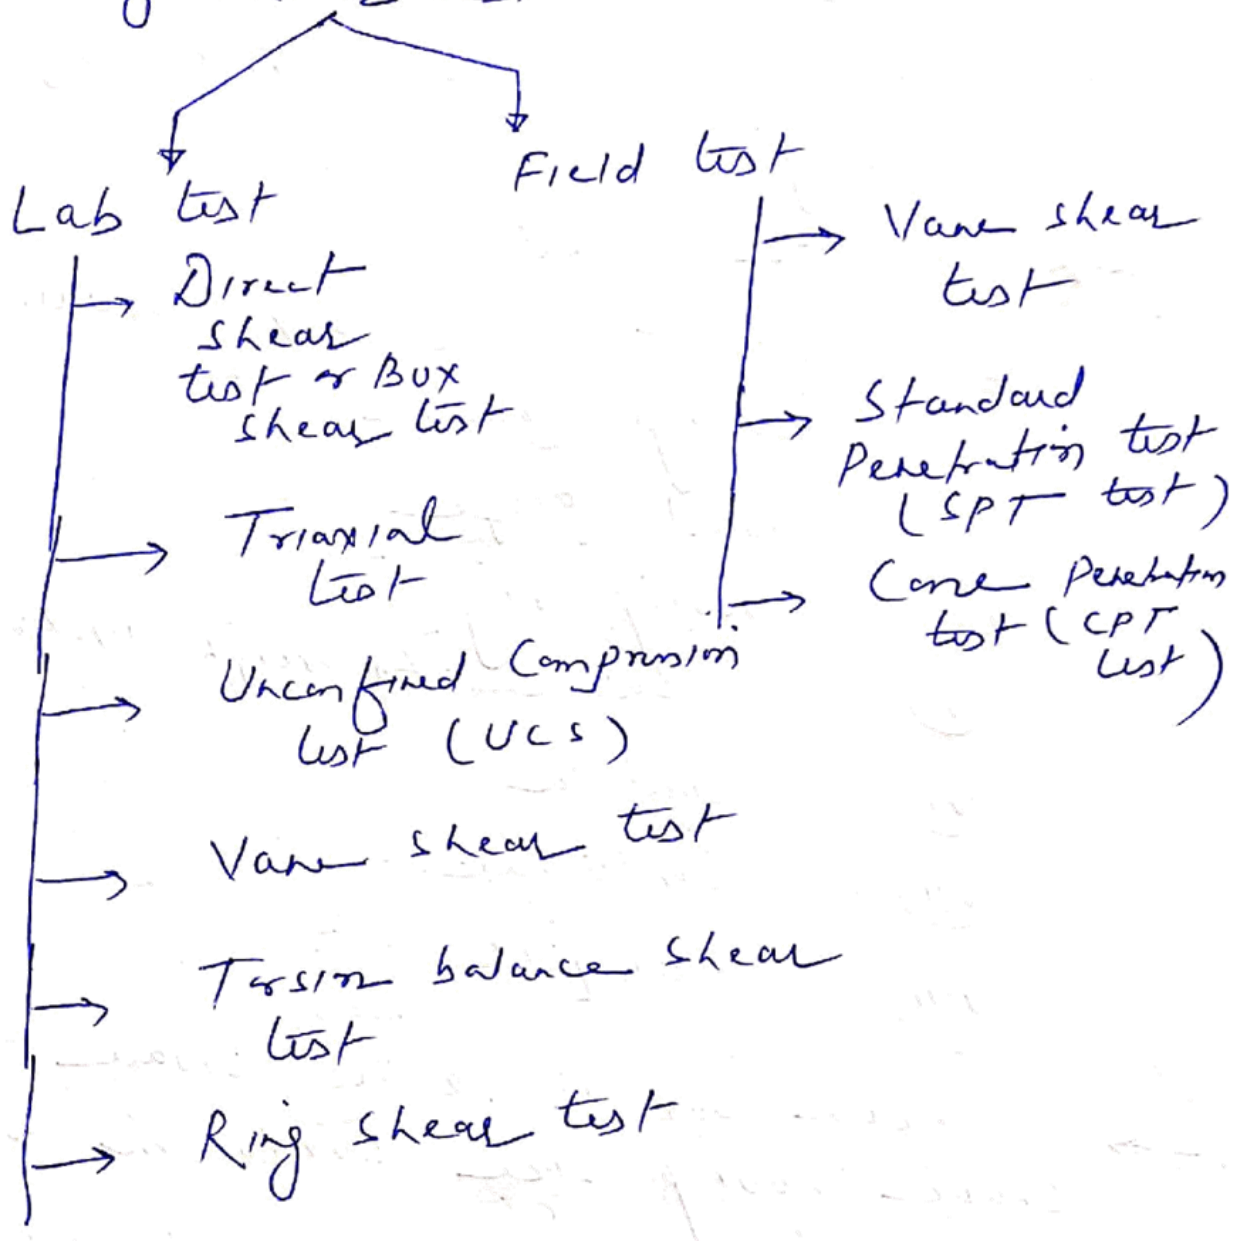 Lab test
Direct
shear
test or Box
shear test
Triaxial
test
Unconfined Compression
test (UCS)
Vane shear test
Torsion balance shear
test
Ring shear test
Field test
Vane shear
test
Standard
Penetration test
(SPT test)
Cone Penetration
test (CPT
test)